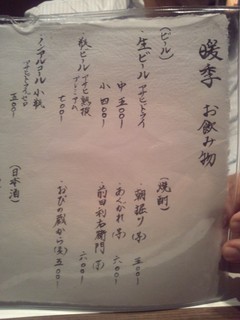 暖季 お飲み物
(ビール)
・生ビール アサヒドライ
中 五〇〇ー
小 四〇〇ー
・瓶ビール アサヒ熟撰
七〇〇ー
・ノンアルコール 小瓶
五〇〇ー
(焼酎)
・朝掘り(芋) 五〇〇ー
・あくがれ(芋) 六〇〇ー
・前田利右衛門(芋)
六〇〇ー
・おびの蔵から(麦)五〇〇ー
(日本酒)